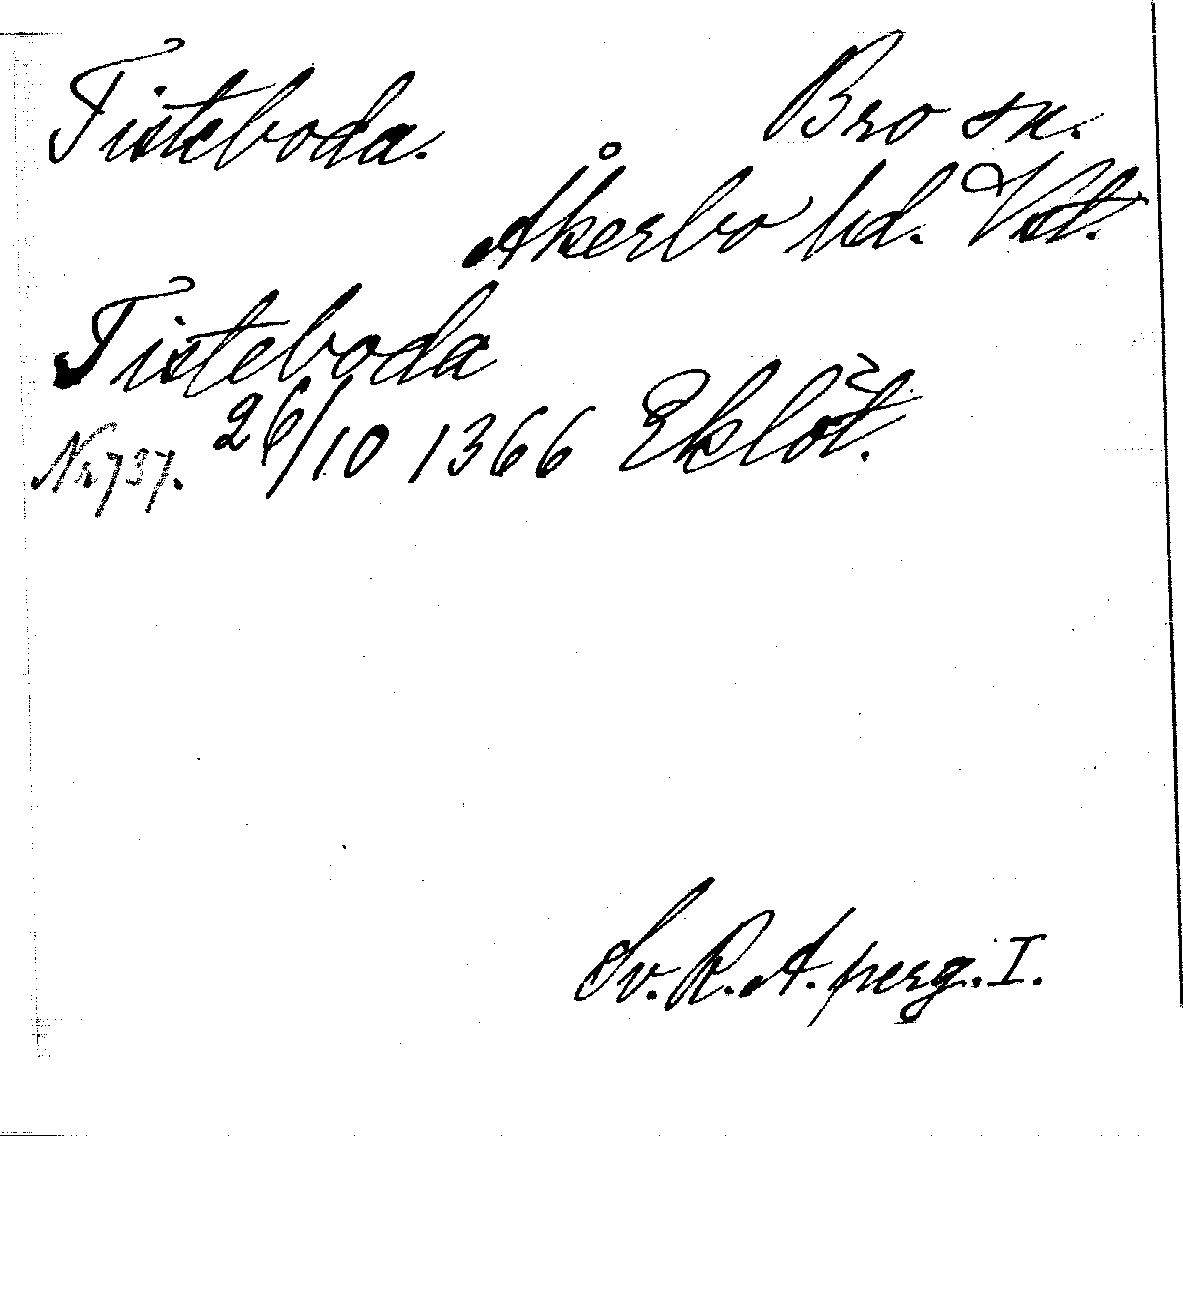 Tisteboda. Bro sn.
Åkerbo hd. Vstl.
Tisteboda
26/10 1366 Eklöt.
Nr 737.
Sv. R. A. perg. I.